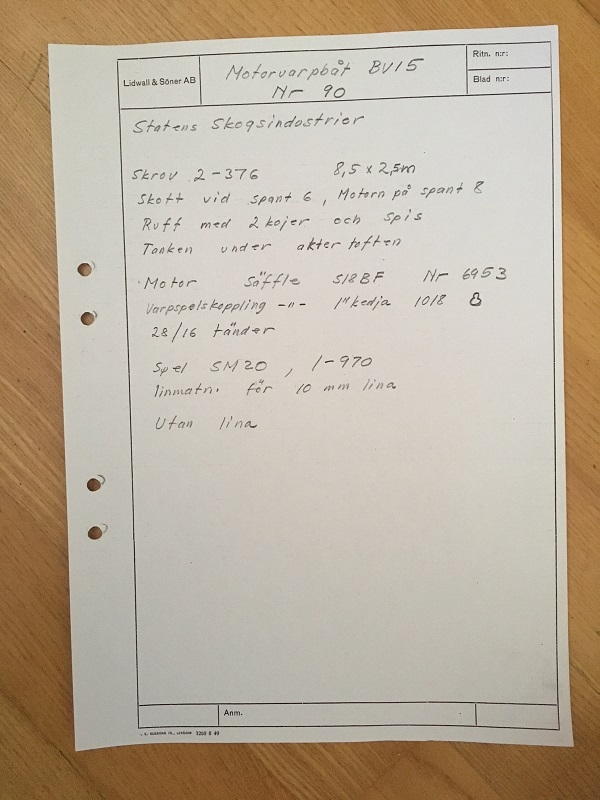 Lidwall & Söner AB
Motorvarpbåt BV15
Nr 90
Ritn. n:r:
Blad n:r:
Statens Skogsindustrier
Skrov 2-376 8,5 x 2,5m
Skott vid spant 6, Motorn på spant 8
Ruff med 2 kojer och spis
Tanken under akter toften
Motor Säffle S18BF Nr 6953
Varpspelskoppling -"- 1" kedja 1018 8
28/16 tänder
Spel SM20, 1-970
linmatn. för 10 mm lina
Utan lina
Anm.
3269 8 49